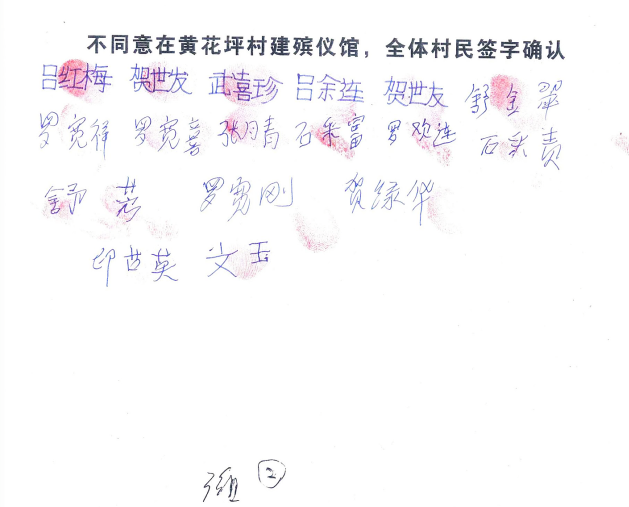 不同意在黄花坪村建殡仪馆，全体村民签字确认
吕红梅 贺世发 武喜珍 吕余连 贺世友 舒金翠
罗宽祥 罗宽喜 张月青 石采富 罗欢连 石采贵
舒芬 罗勇刚 贺绿华
印古英 文玉
组 ②